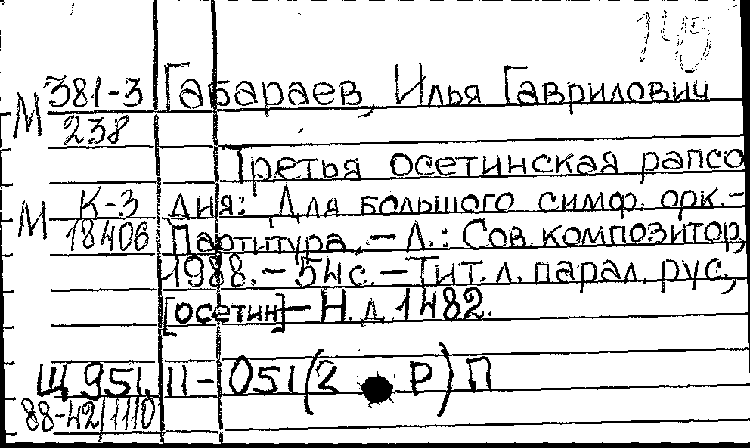 149
М 381-3 Габараев, Илья Гаврилович
238
Третья осетинская рапсо
М К-3 дия: Для большого симф. орк.-
18406 Партитура.-Л.: Сов. композитор,
1988.-54с.-Тит. л. парал. рус.,
[осетин]-Н. д. 1482.
Щ 951.11-051(2 Р) П
88-42/1110